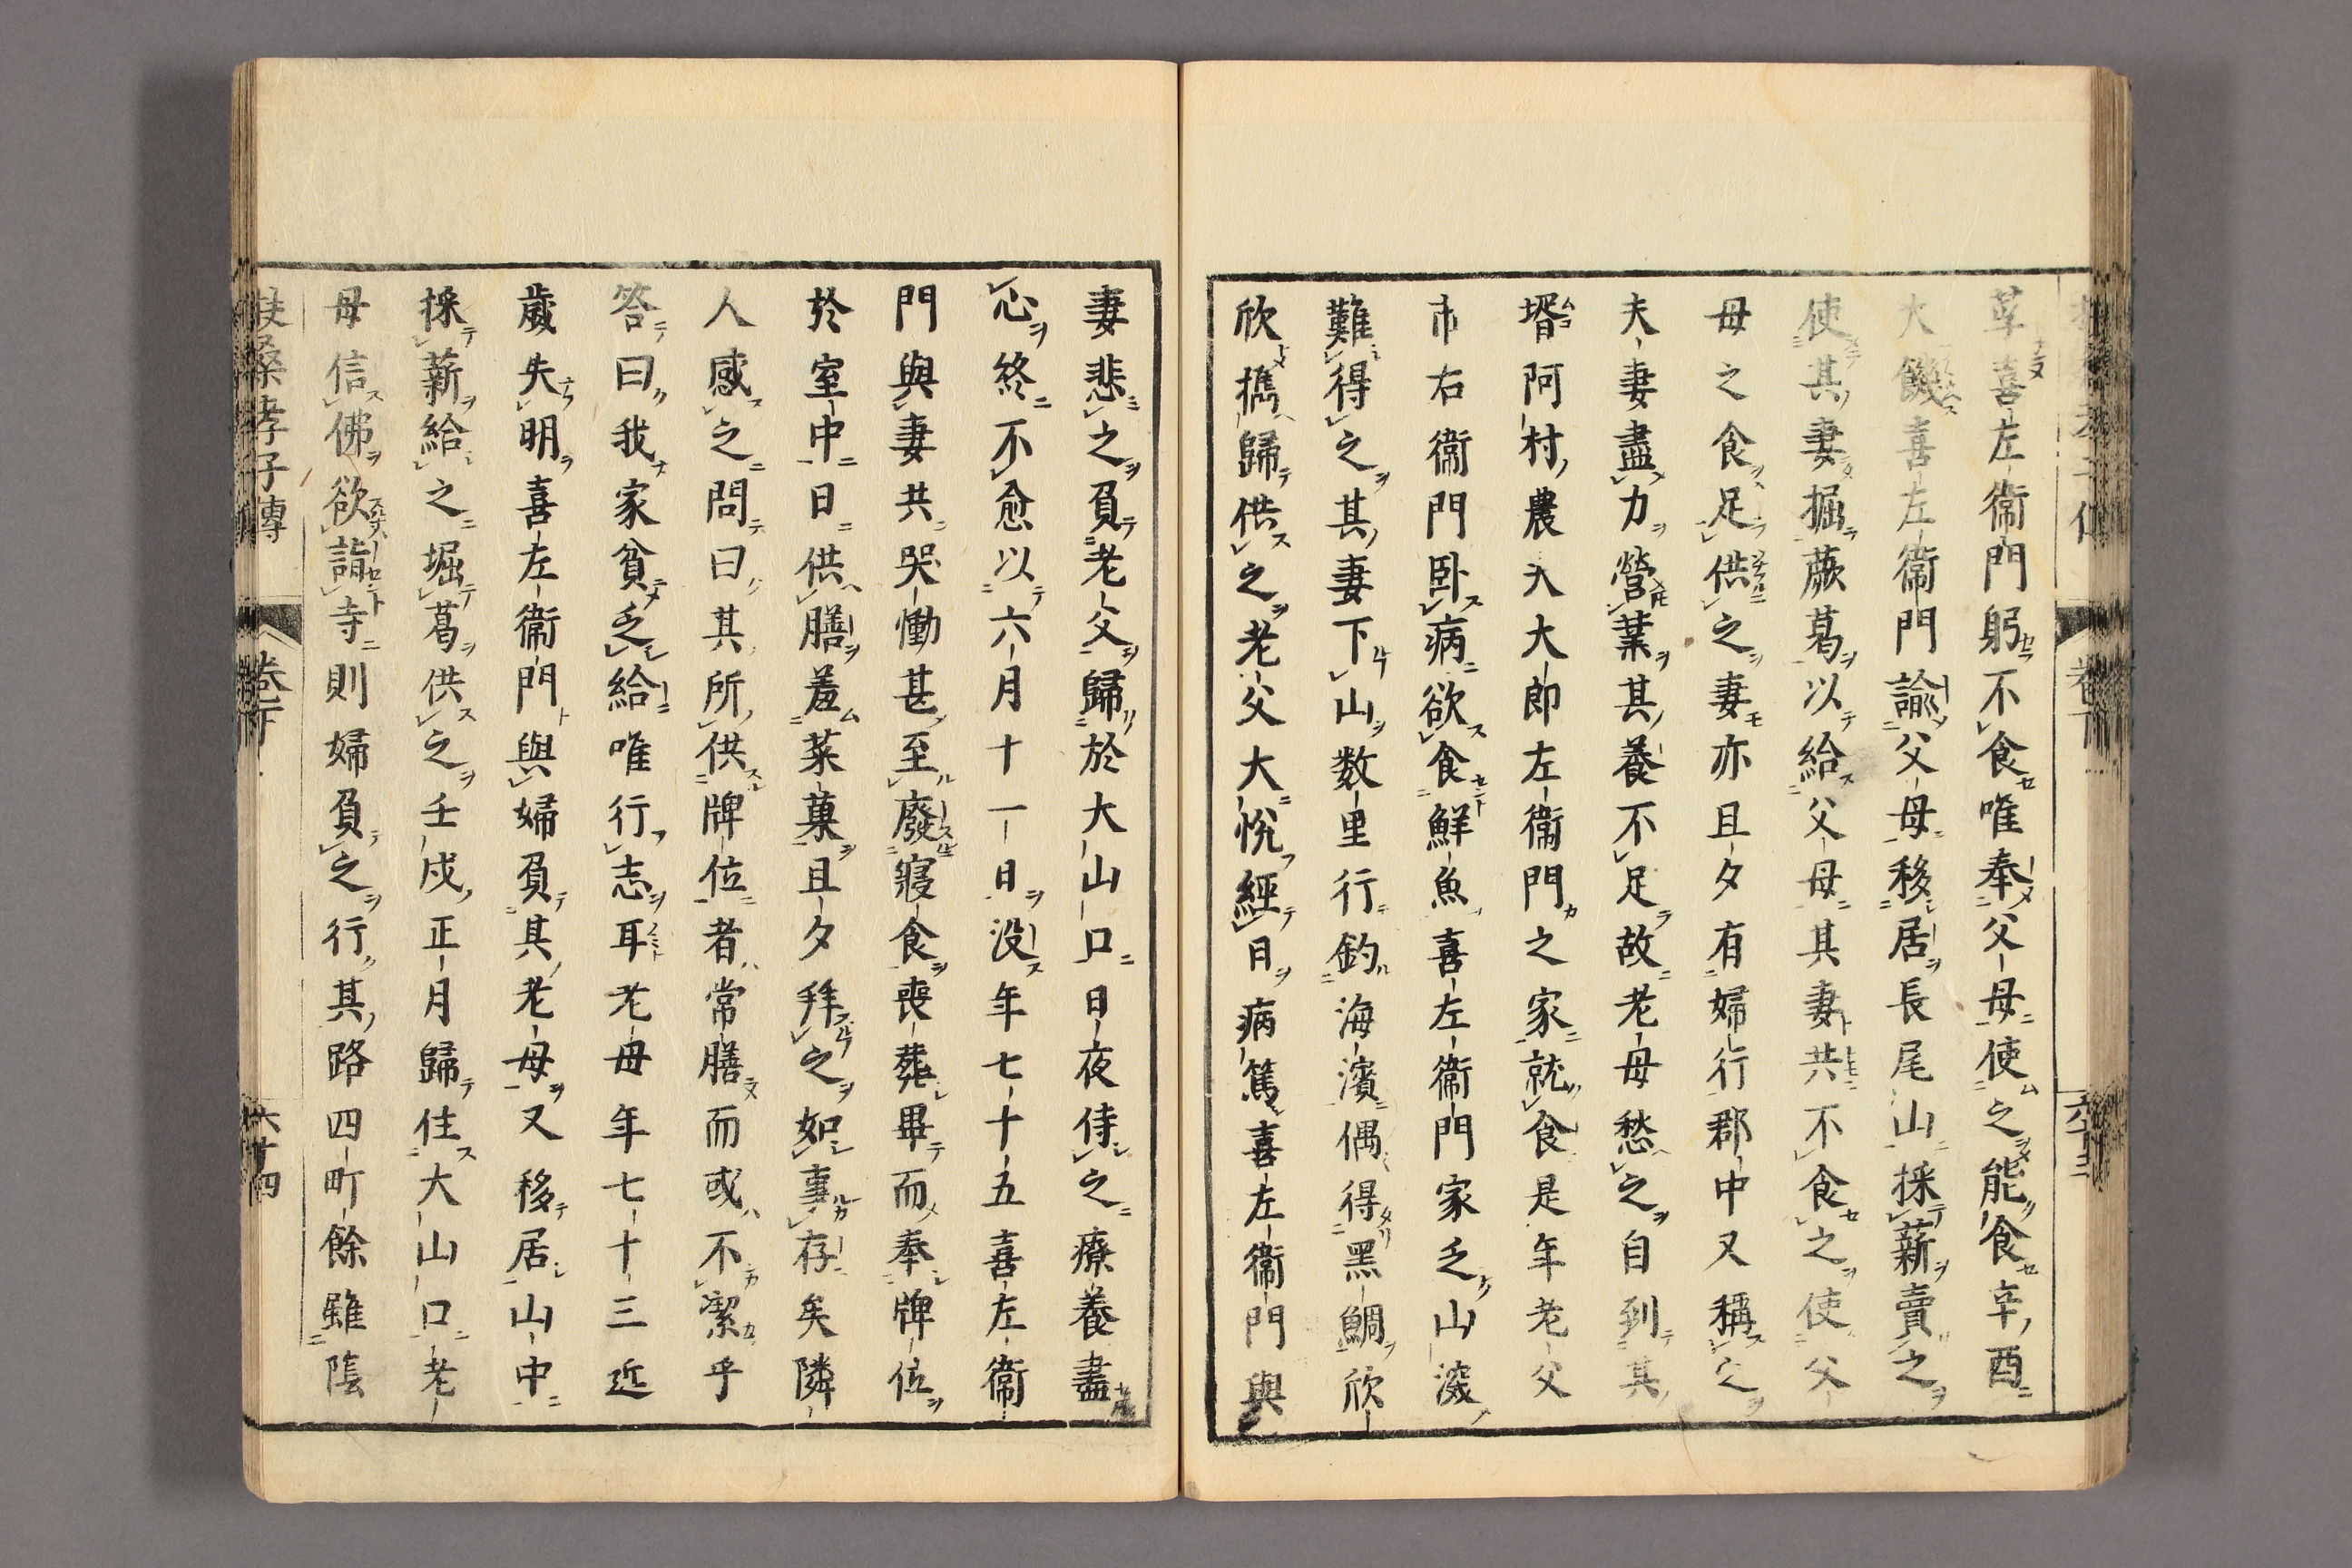 莩喜左衞門躬不食唯奉父母使之能食辛酉
大饑喜左衞門諭父母移居長尾山採薪賣之
使其妻掘蕨葛以給父母其妻共不食之使父
母之食足供之妻亦且夕有婦行郡中又稱之
夫妻盡力營業其養不足故老母愁之自到其
壻阿村農人大郎左衞門之家就食是年老父
市右衞門卧病欲食鮮魚喜左衞門家乏山濲
難得之其妻下山数里行釣海濱偶得黑鯛欣
欣攜歸供之老父大悅經日病篤喜左衞門與
妻悲之負老父歸於大山口日夜侍之療養盡
心終不愈以六月十一日没年七十五喜左衞
門與妻共哭慟甚至廢寢食喪葬畢而奉牌位
於室中日供膳羞菜菓且夕拜之如事存矣隣
人感之問曰其所供牌位者常膳而或不潔乎
答曰我家貧乏給唯行志耳老母年七十三近
歲失明喜左衞門與婦負其老母又移居山中
採薪給之堀葛供之壬戍正月歸住大山口老
母信佛欲詣寺則婦負之行其路四町餘雖陰
扶桑孝子傳 卷下 六十四